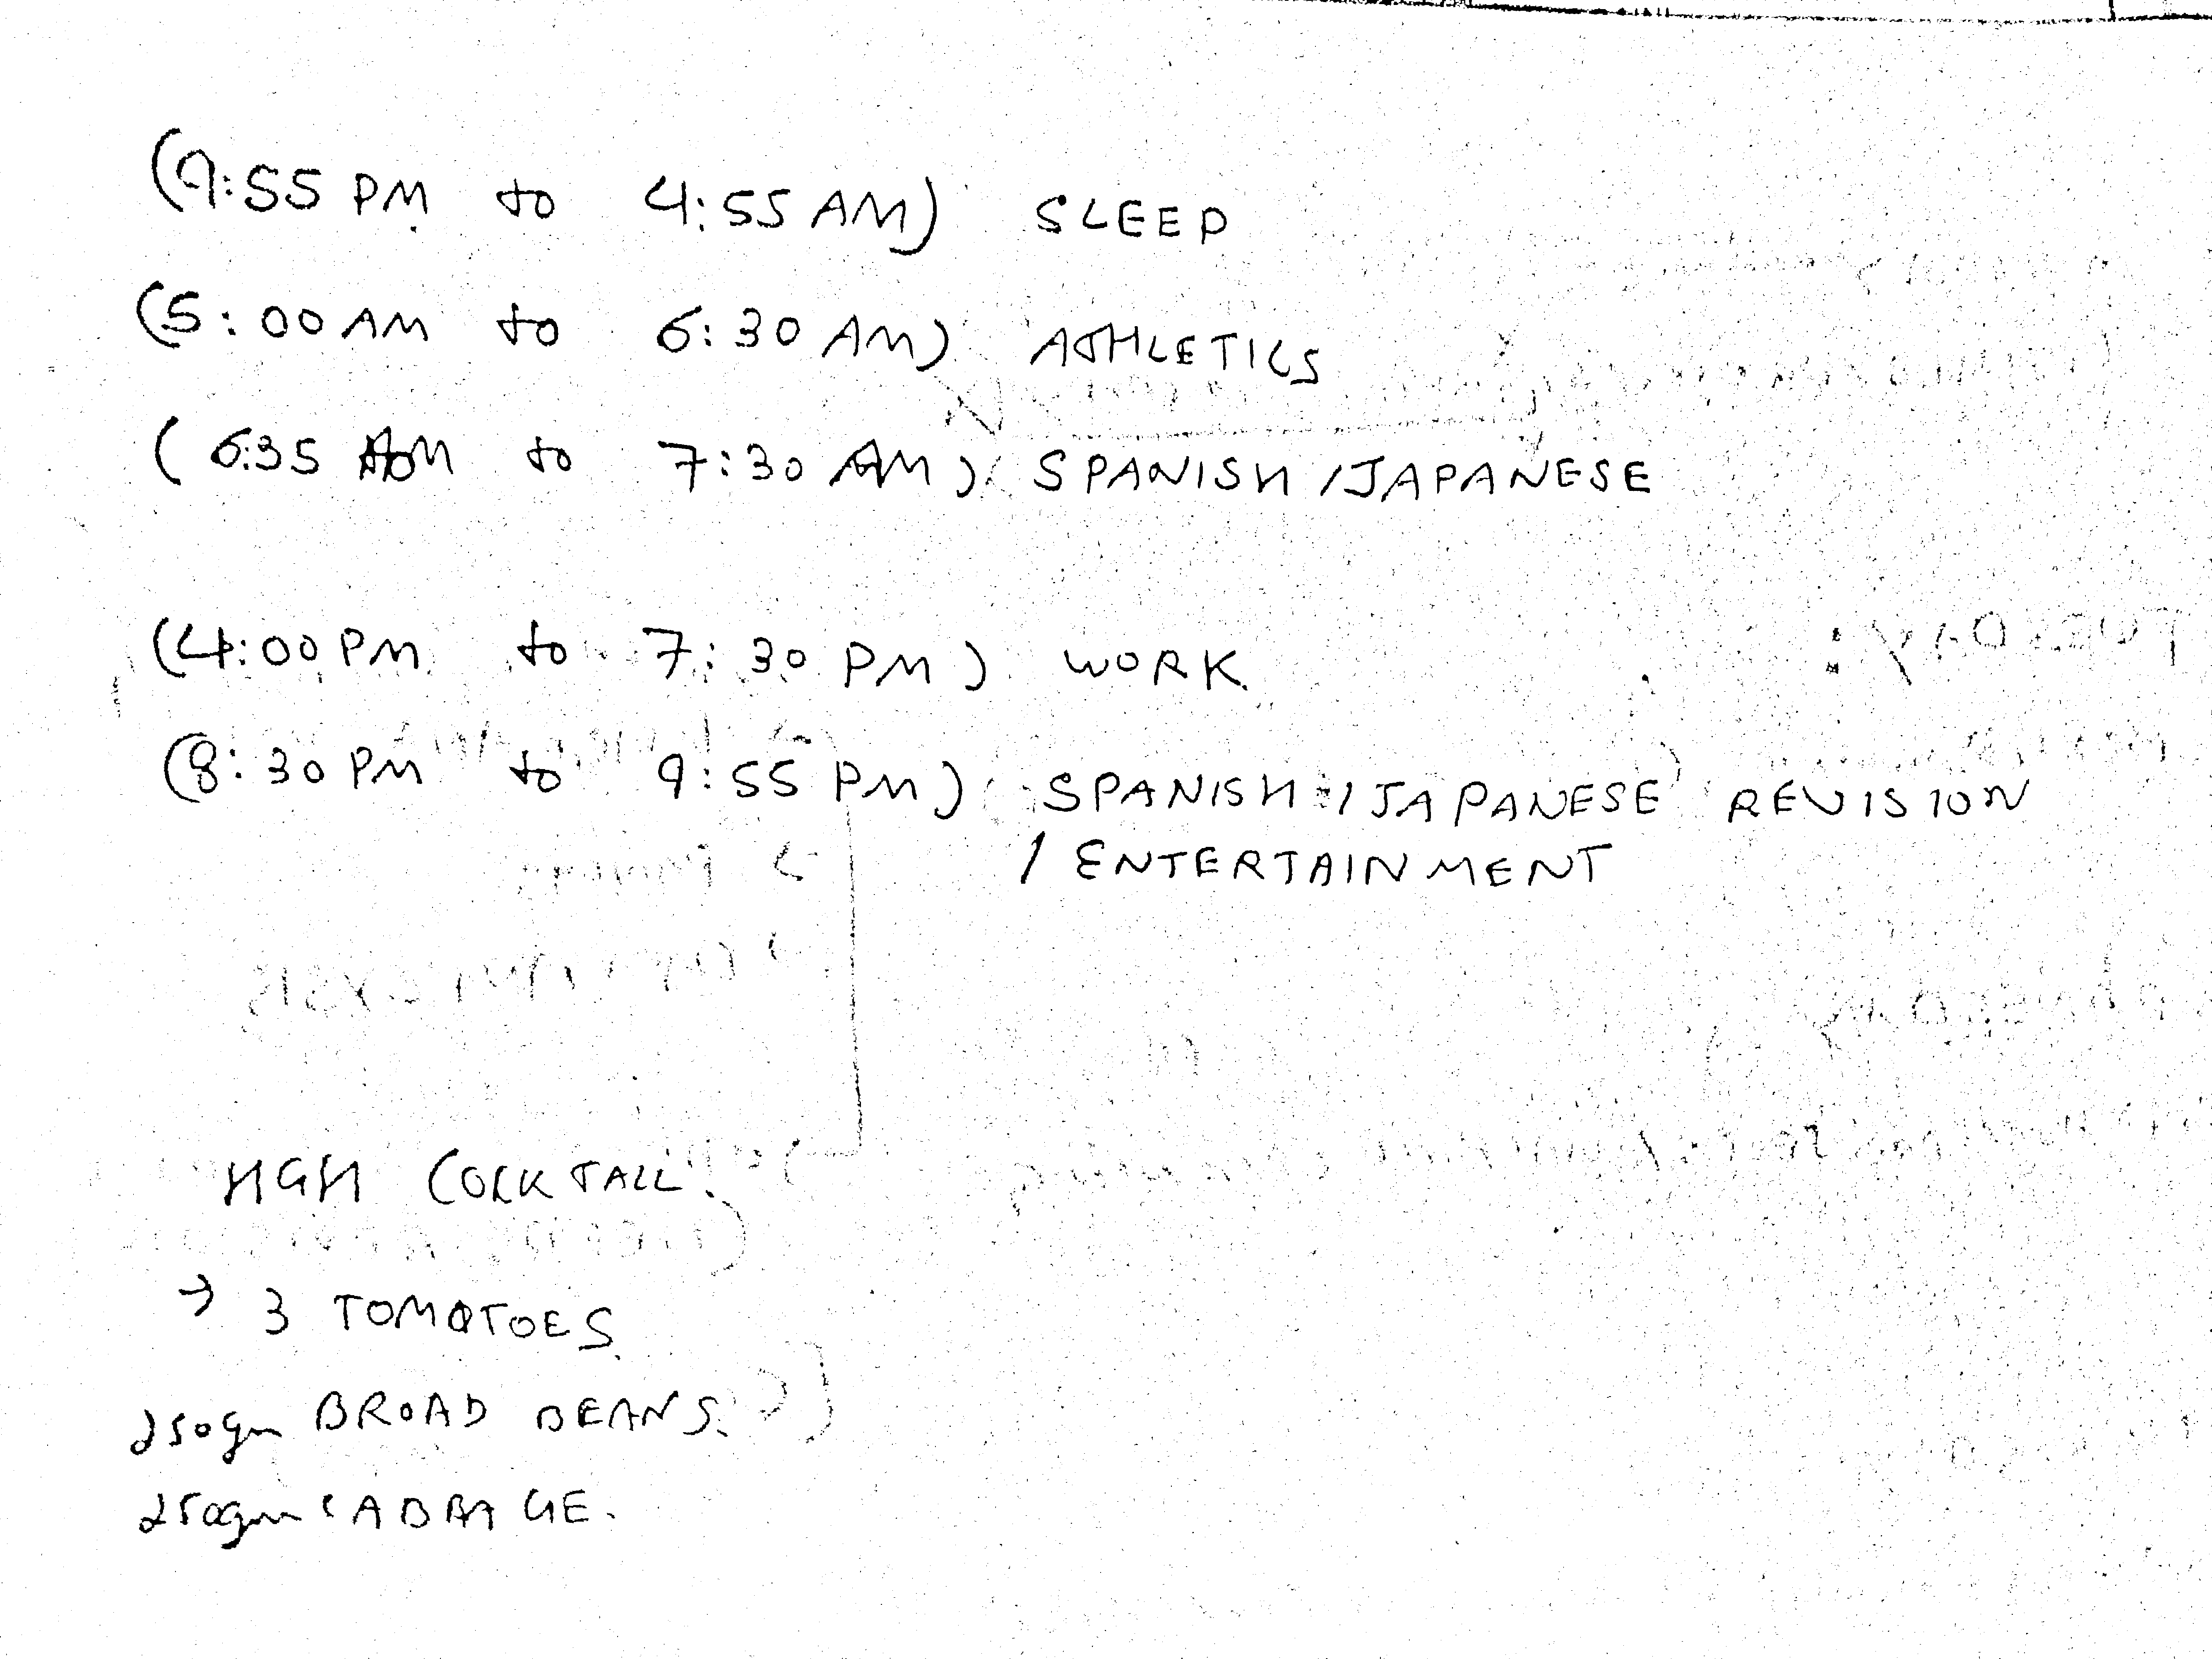 (9:55 PM to 4:55 AM) SLEEP
(5:00 AM to 6:30 AM) ATHLETICS
(6:35 AM to 7:30 AM) SPANISH /JAPANESE
(4:00 PM to 7:30 PM) WORK.
(8:30 PM to 9:55 PM) SPANISH / JAPANESE REVISION
/ ENTERTAINMENT
HGH COCKTAIL:
→ 3 TOMATOES
250gm BROAD BEANS.
250gm CABBAGE.